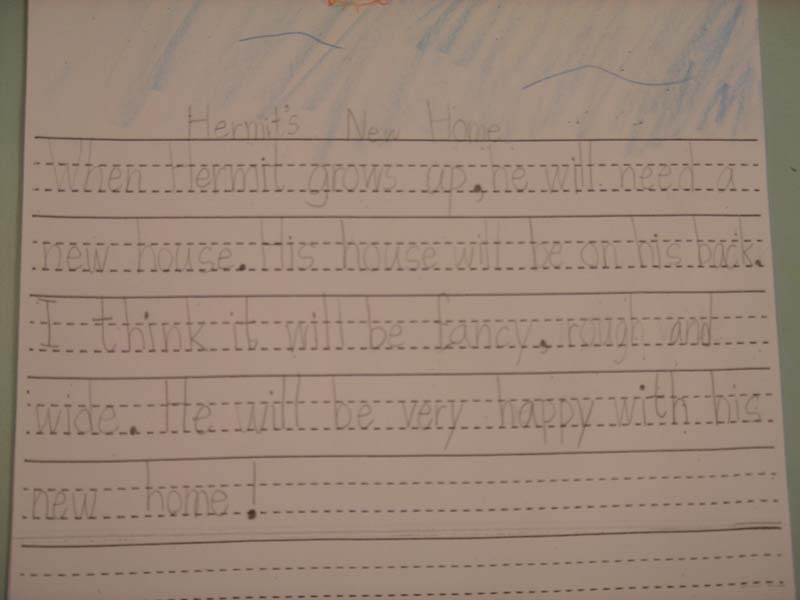 Hermit's New Home
When Hermit grows up, he will need a
new house. His house will be on his back.
I think it will be fancy, rough and
wide. He will be very happy with his
new home!